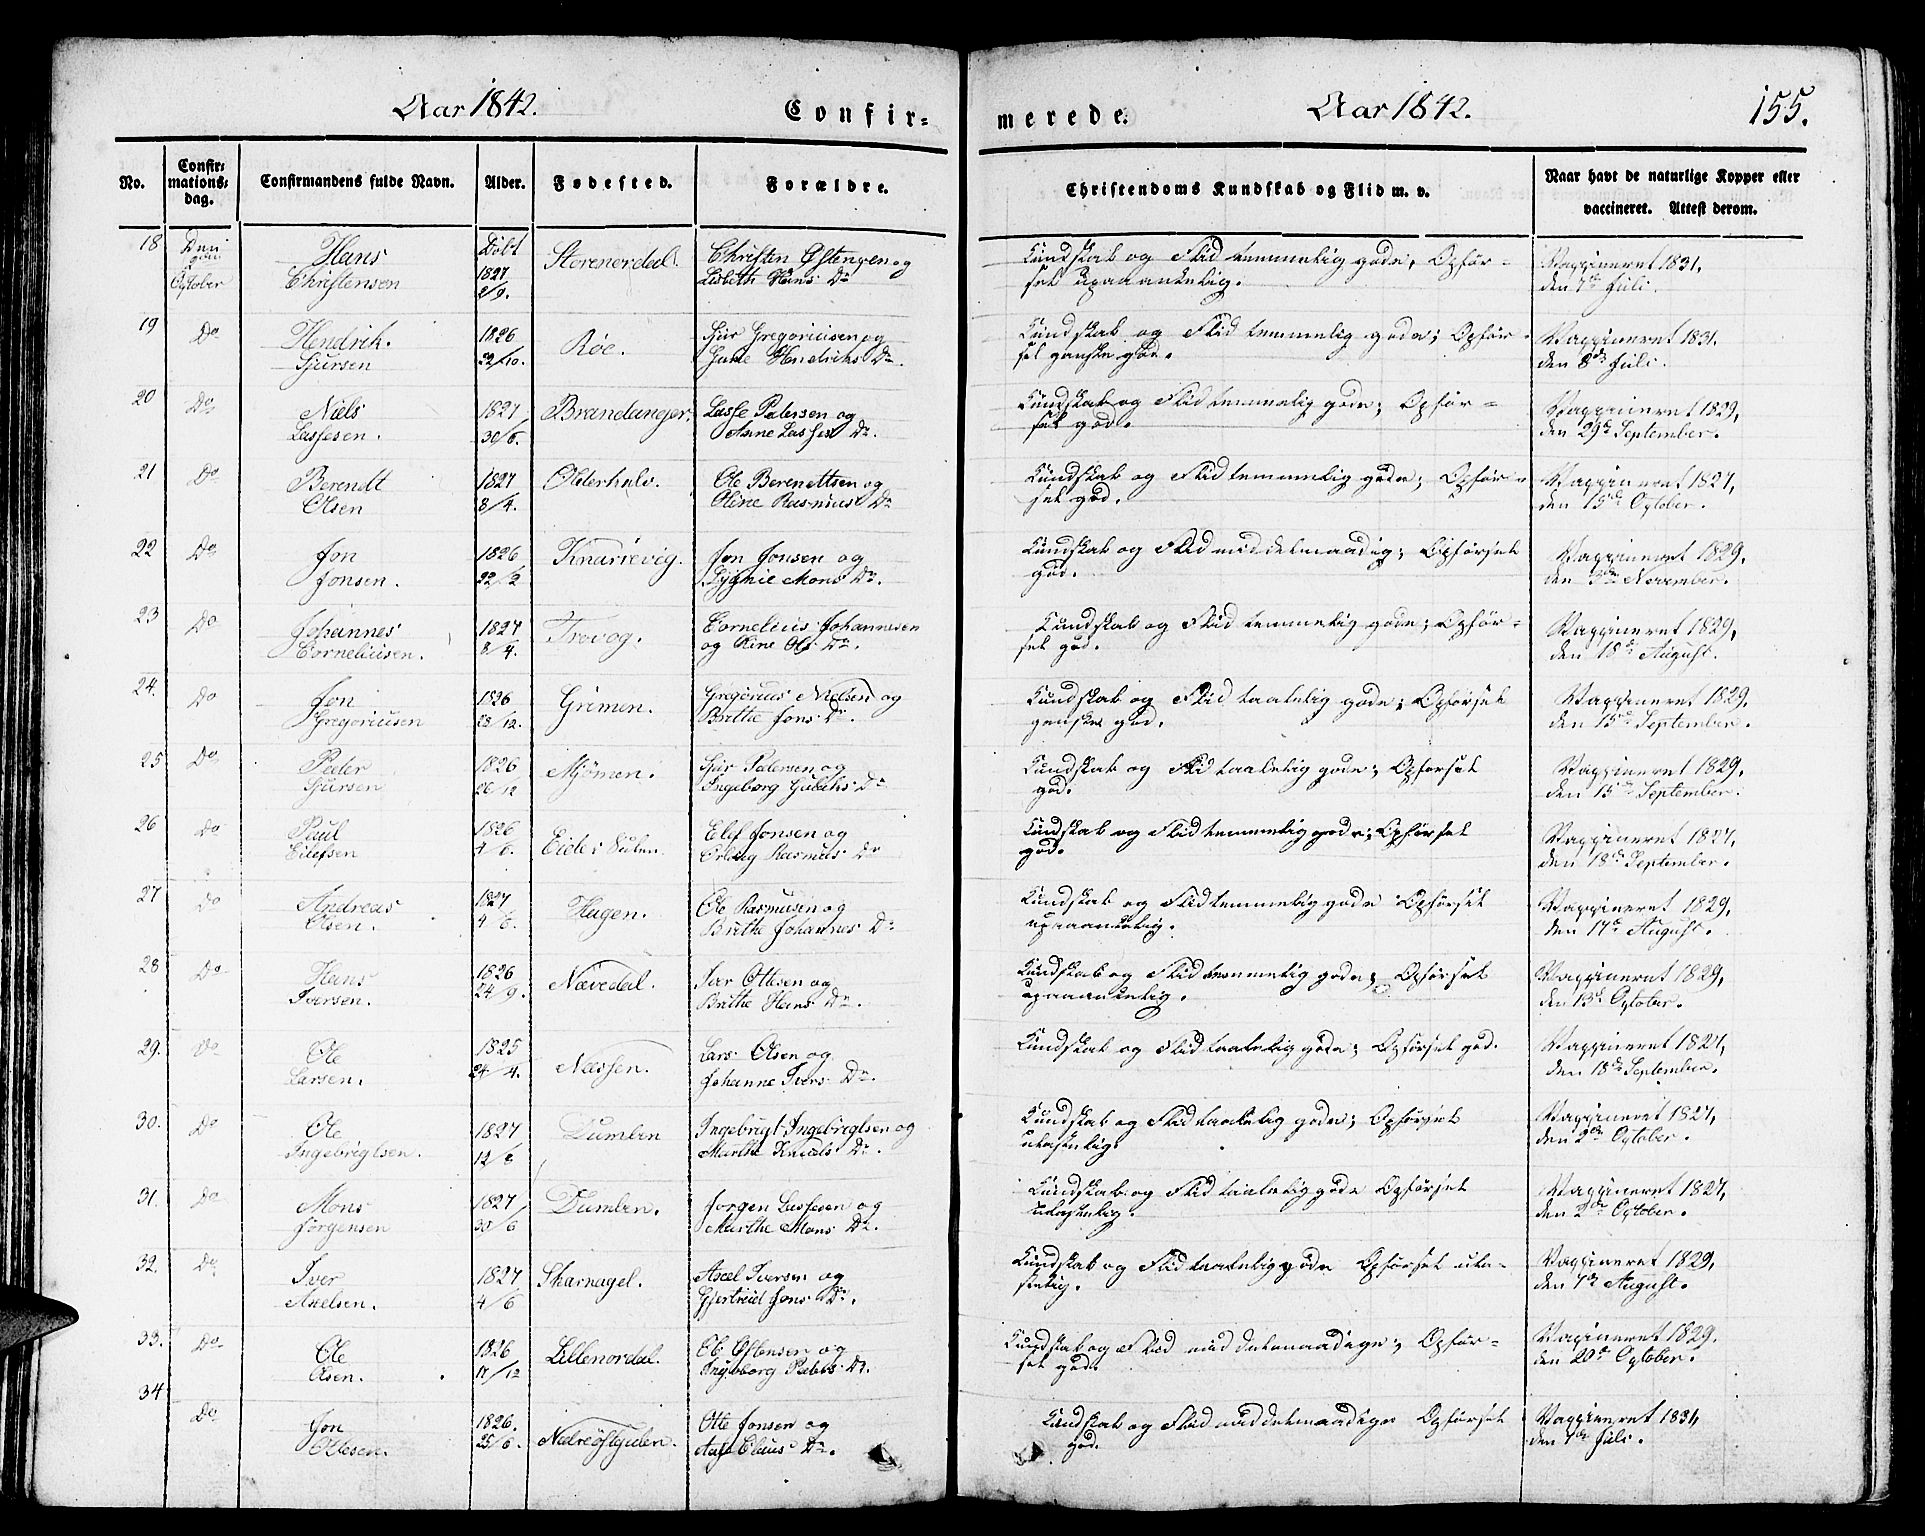 Aar 1842. Confir- merede. Aar 1842. 155.
No. Confirmations-dag. Confirmandens fulde Navn. Alder. Fødested. Forældre. Christendoms Kundskab og Flid m. v. Naar havt de naturlige Kopper eller vaccineret. Attest derom.
18 Den October Hans Døbt Christen Østensen og Kundskab og Flid temmelig gode, Opfør- Vaccineret 1831,
Christensen 1827 2/9. Lisbeth Hans Dr. sel upaaankelig. den 7de Juli.
19 Do Hendrik 1826 Røe. Sjur Gregoriusen og Kundskab og Flid temmelig gode; Opfør- Vaccineret 1831.
Sjursen 22/10. Hendriks Dr. sel ganske god. den 8de Juli.
20 Do Niels 1827 Brandanger. Lasse Petersen og Kundskab og Flid temmelig gode; Opfør- Vaccineret 1829,
Lassesen. 30/6. Anne Lasses Dr. sel god. den 29de September.
21 Do Berendt 1827 Otterhals. Ole Berenttsen og Kundskab og Flid temmelig gode; Opfør- Vaccineret 1827,
Olsen 8/4. Oline Rasmus Dr. sel god. den 15de October.
22 Do Jon 1826 Knarrevig. Jon Jonsen og Kundskab og Flid middelmaadig; Opførsel Vaccineret 1829,
Jonsen. 22/2 Mons Dr. god. den 3die November.
23 Do Johannes 1827 Trovog. Cornelius Johannesen Kundskab og Flid temmelig gode; Opfør- Vaccineret 1829,
Corneliusen. 8/4. og Oline Ols Dr. sel god. den 18de August.
24. Do Jon 1826 Grimen. Gregorius Nielsen og Kundskab og Flid taalelig gode; Opførsel Vaccineret 1829,
Gregoriusen 23/12. Brithe Jons Dr. ganske god. den 15de September.
25 Do Peder 1826 Mjömen. Sjur Pedersen og Kundskab og Flid taalelig gode; Opførsel Vaccineret 1829,
Sjursen 26/12 Ingeborg Dr. god. den 15de September.
26 Do Paul 1826 Eide Elef Jonsen og Kundskab og Flid temmelig gode; Opførsel Vaccineret 1827,
Eilefsen 4/6. Rasmus Dr. god. den 18de September.
27 Do Andreas 1827 Hagen. Ole Rasmusen og Kundskab og Flid temmelig gode Opførsel Vaccineret 1829,
Olsen. 4/6. Brithe Johannes Dr. upaaankelig. den 17de August.
28 Do Hans 1826 Nævedal. Iver Ottesen og Kundskab og Flid temmelig gode; Opførsel Vaccineret 1829,
Iversen. 24/9. Brithe Hans Dr. upaaankelig. den 13de October.
29. Do Ole 1825 Næssen. Lars Olsen og Kundskab og Flid taalelig gode; Opførsel god. Vaccineret 1827,
Larsen. 24/4. Johanne Ivers Dr. den 18de September.
30. Do Ole 1827 Dumben Ingebrigt Ingebrigtsen og Kundskab og Flid taalelig gode; Opførsel Vaccineret 1827,
Ingebrigtsen. 12/8 Marthe Knuds Dr. ulastelig. den 2den October.
31. Do Mons 1827 Dumben. Jørgen Lassesen og Kundskab og Flid taalelig gode Opførsel Vaccineret 1827,
Jørgensen 30/6 Marthe Mons Dr. ulastelig. den 2den October.
32. Do Iver 1827 Skarnagel. Axel Iversen og Kundskab og Flid taalelig gode Opførsel ula- Vaccineret 1829,
Axelsen. 4/6 Gjertrud Jons Dr. stelig. den 7de August.
33. Do Ole 1826 Lillenordal. Ole Østensen og Kundskab og Flid middelmaadige; Opfør- Vaccineret 1829.
Olsen. 17/12 Ingeborg Peders Dr. sel god. den 20de October.
34 Do Jon 1826. Otte Jonsen og Kundskab og Flid middelmaadige Opførsel Vaccineret 1831,
Ottesen. 25/6. Claus Dr. god. den 7de Juli.